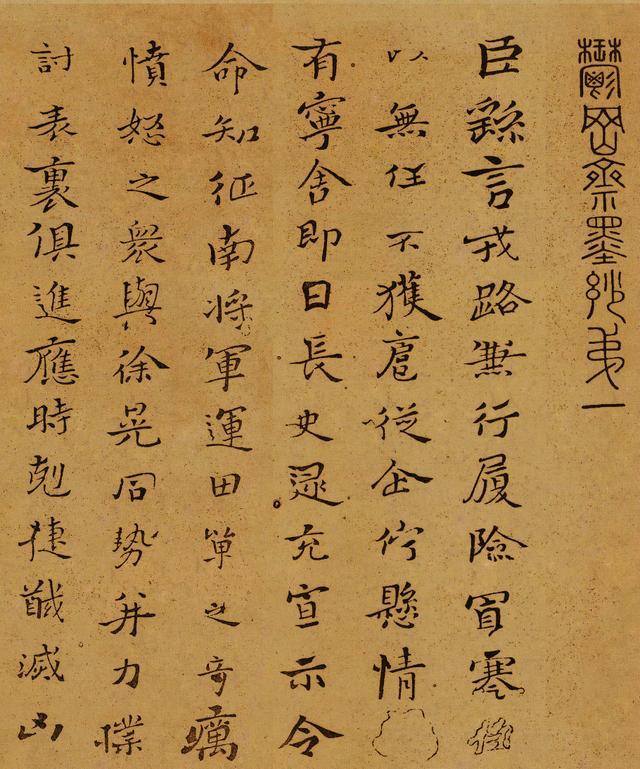 鬱岡齋墨妙第一
臣繇言戎路兼行履險冒寒
以無任不獲扈從企佇懸情
有寧舍即日長史逯充宣示令
命知征南將軍運田單之奇厲
憤怒之眾與徐晃同勢并力撲
討表裏俱進應時剋捷馘滅凶